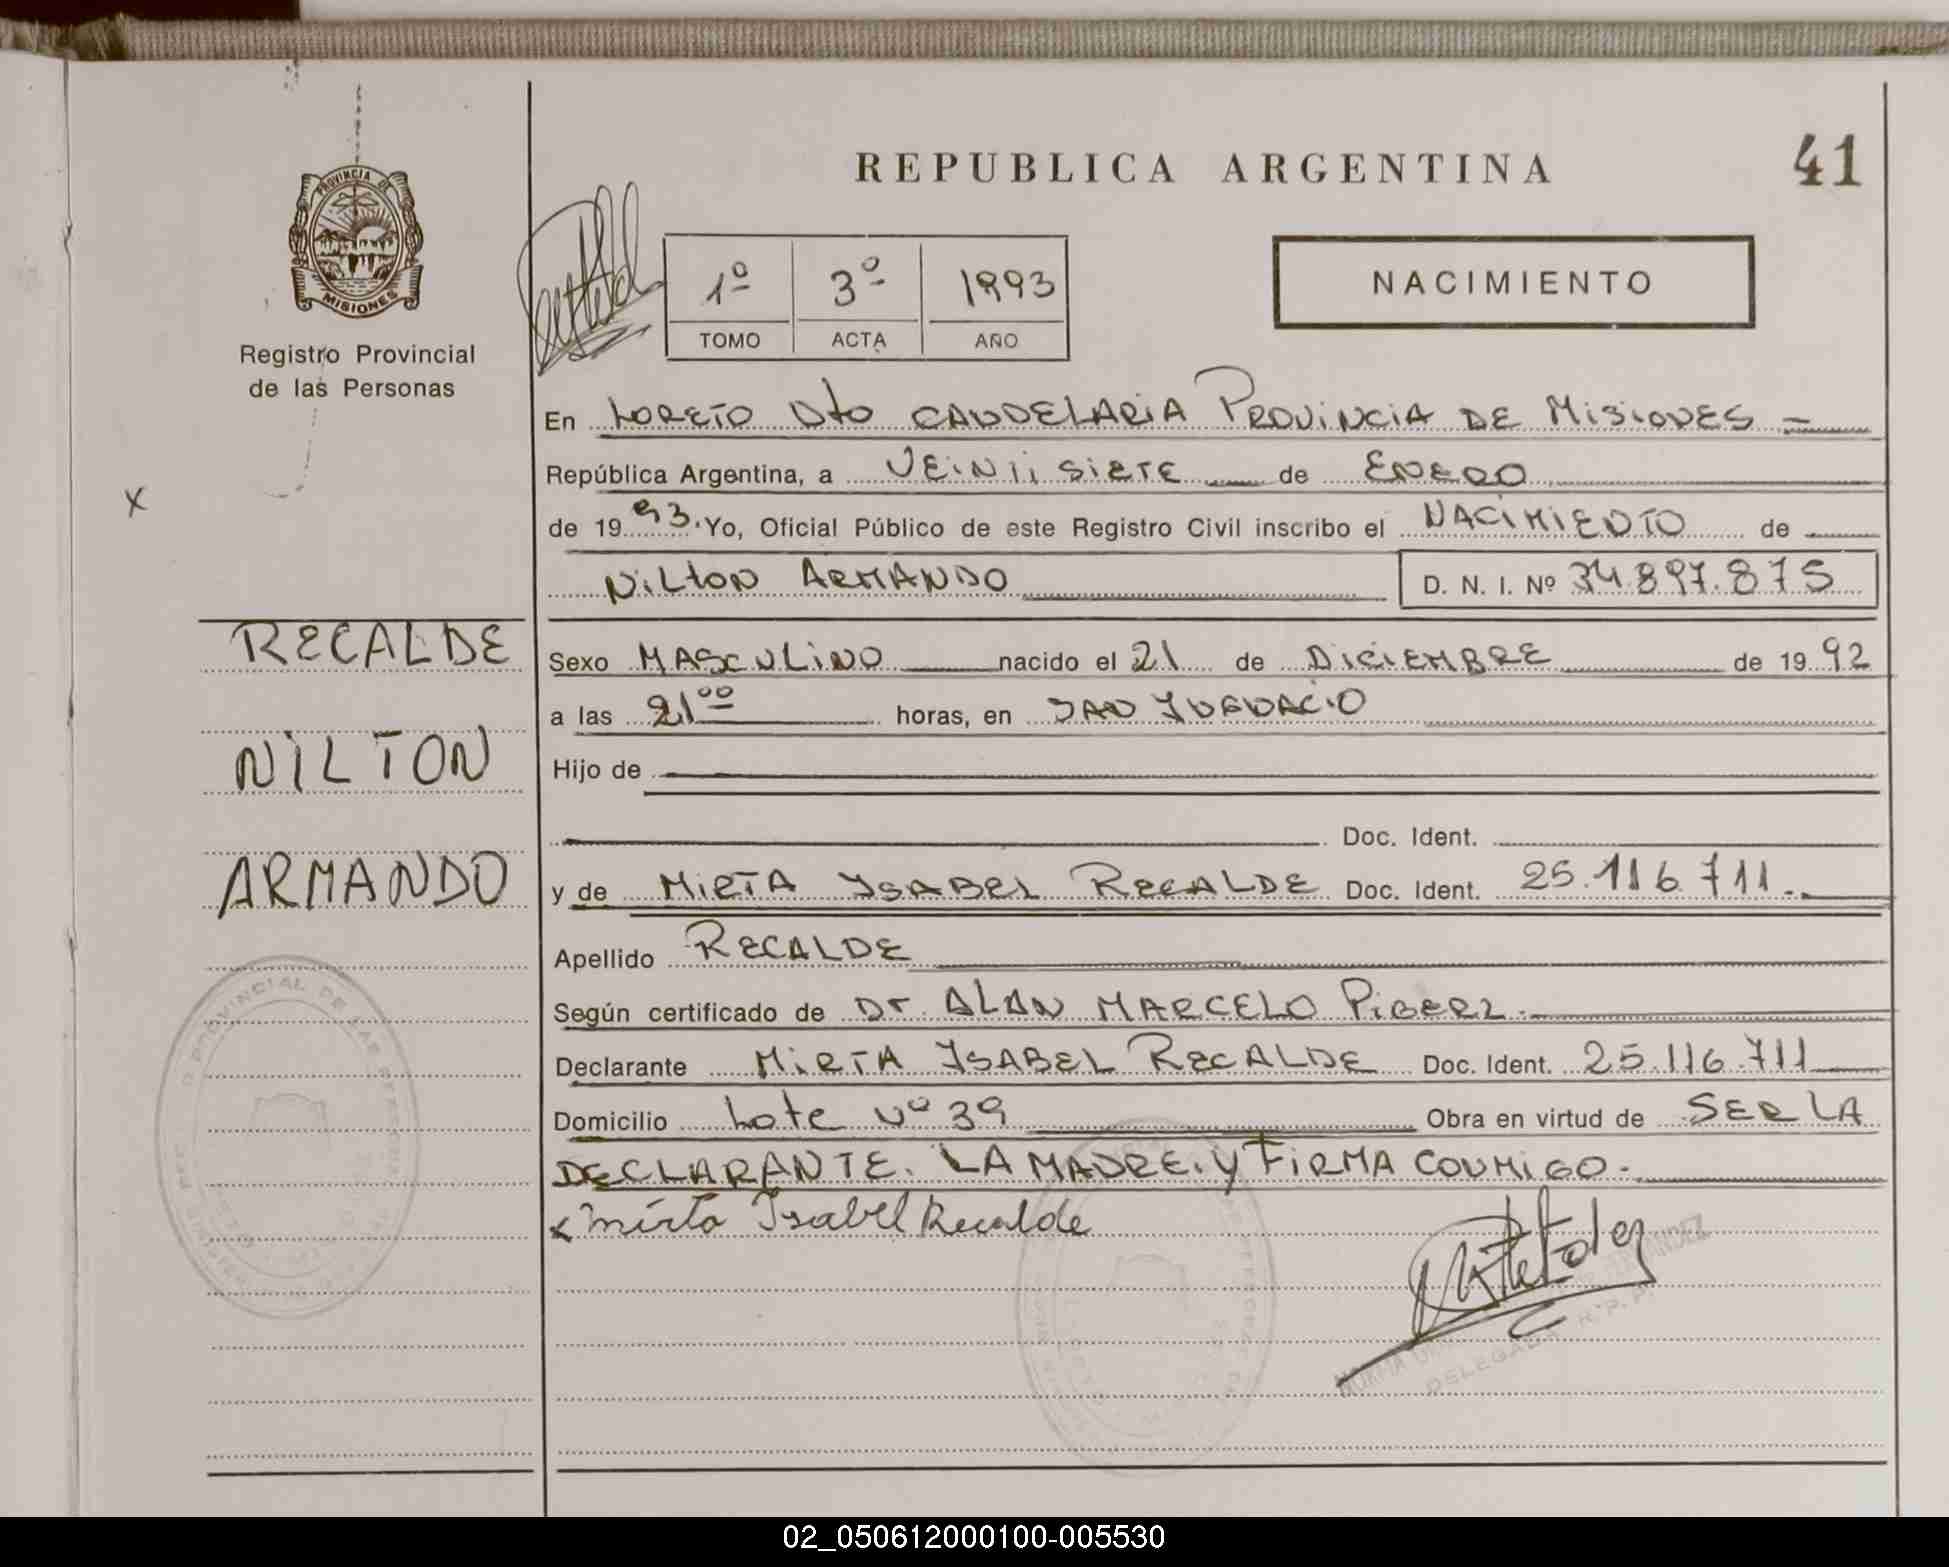 REPUBLICA ARGENTINA
41
PROVINCIA DE
MISIONES
Registro Provincial
de las Personas
1º 3º 1993
TOMO ACTA AÑO
NACIMIENTO
En LORETO Dto CANDELARIA PROVINCIA DE MISIONES =
República Argentina, a VEINTISIETE de ENERO
de 19 93. Yo, Oficial Público de este Registro Civil inscribo el NACIMIENTO de
NILTON ARMANDO D. N. I. Nº 34.897.875
X
RECALDE
NILTON
ARMANDO
Sexo MASCULINO nacido el 21 de DICIEMBRE de 19 92
a las 21⁰⁰ horas, en SAN IGNACIO
Hijo de
Doc. Ident.
y de MIRTA YSABEL RECALDE Doc. Ident. 25.116.711.
Apellido RECALDE
Según certificado de Dr. ALAN MARCELO
Declarante MIRTA YSABEL RECALDE Doc. Ident. 25.116.711
Domicilio Lote Nº 39 Obra en virtud de SER LA
DECLARANTE. LA MADRE. Y FIRMA CONMIGO.
x Mirta Ysabel Recalde
DELEGADA R.P.P.
02_050612000100-005530